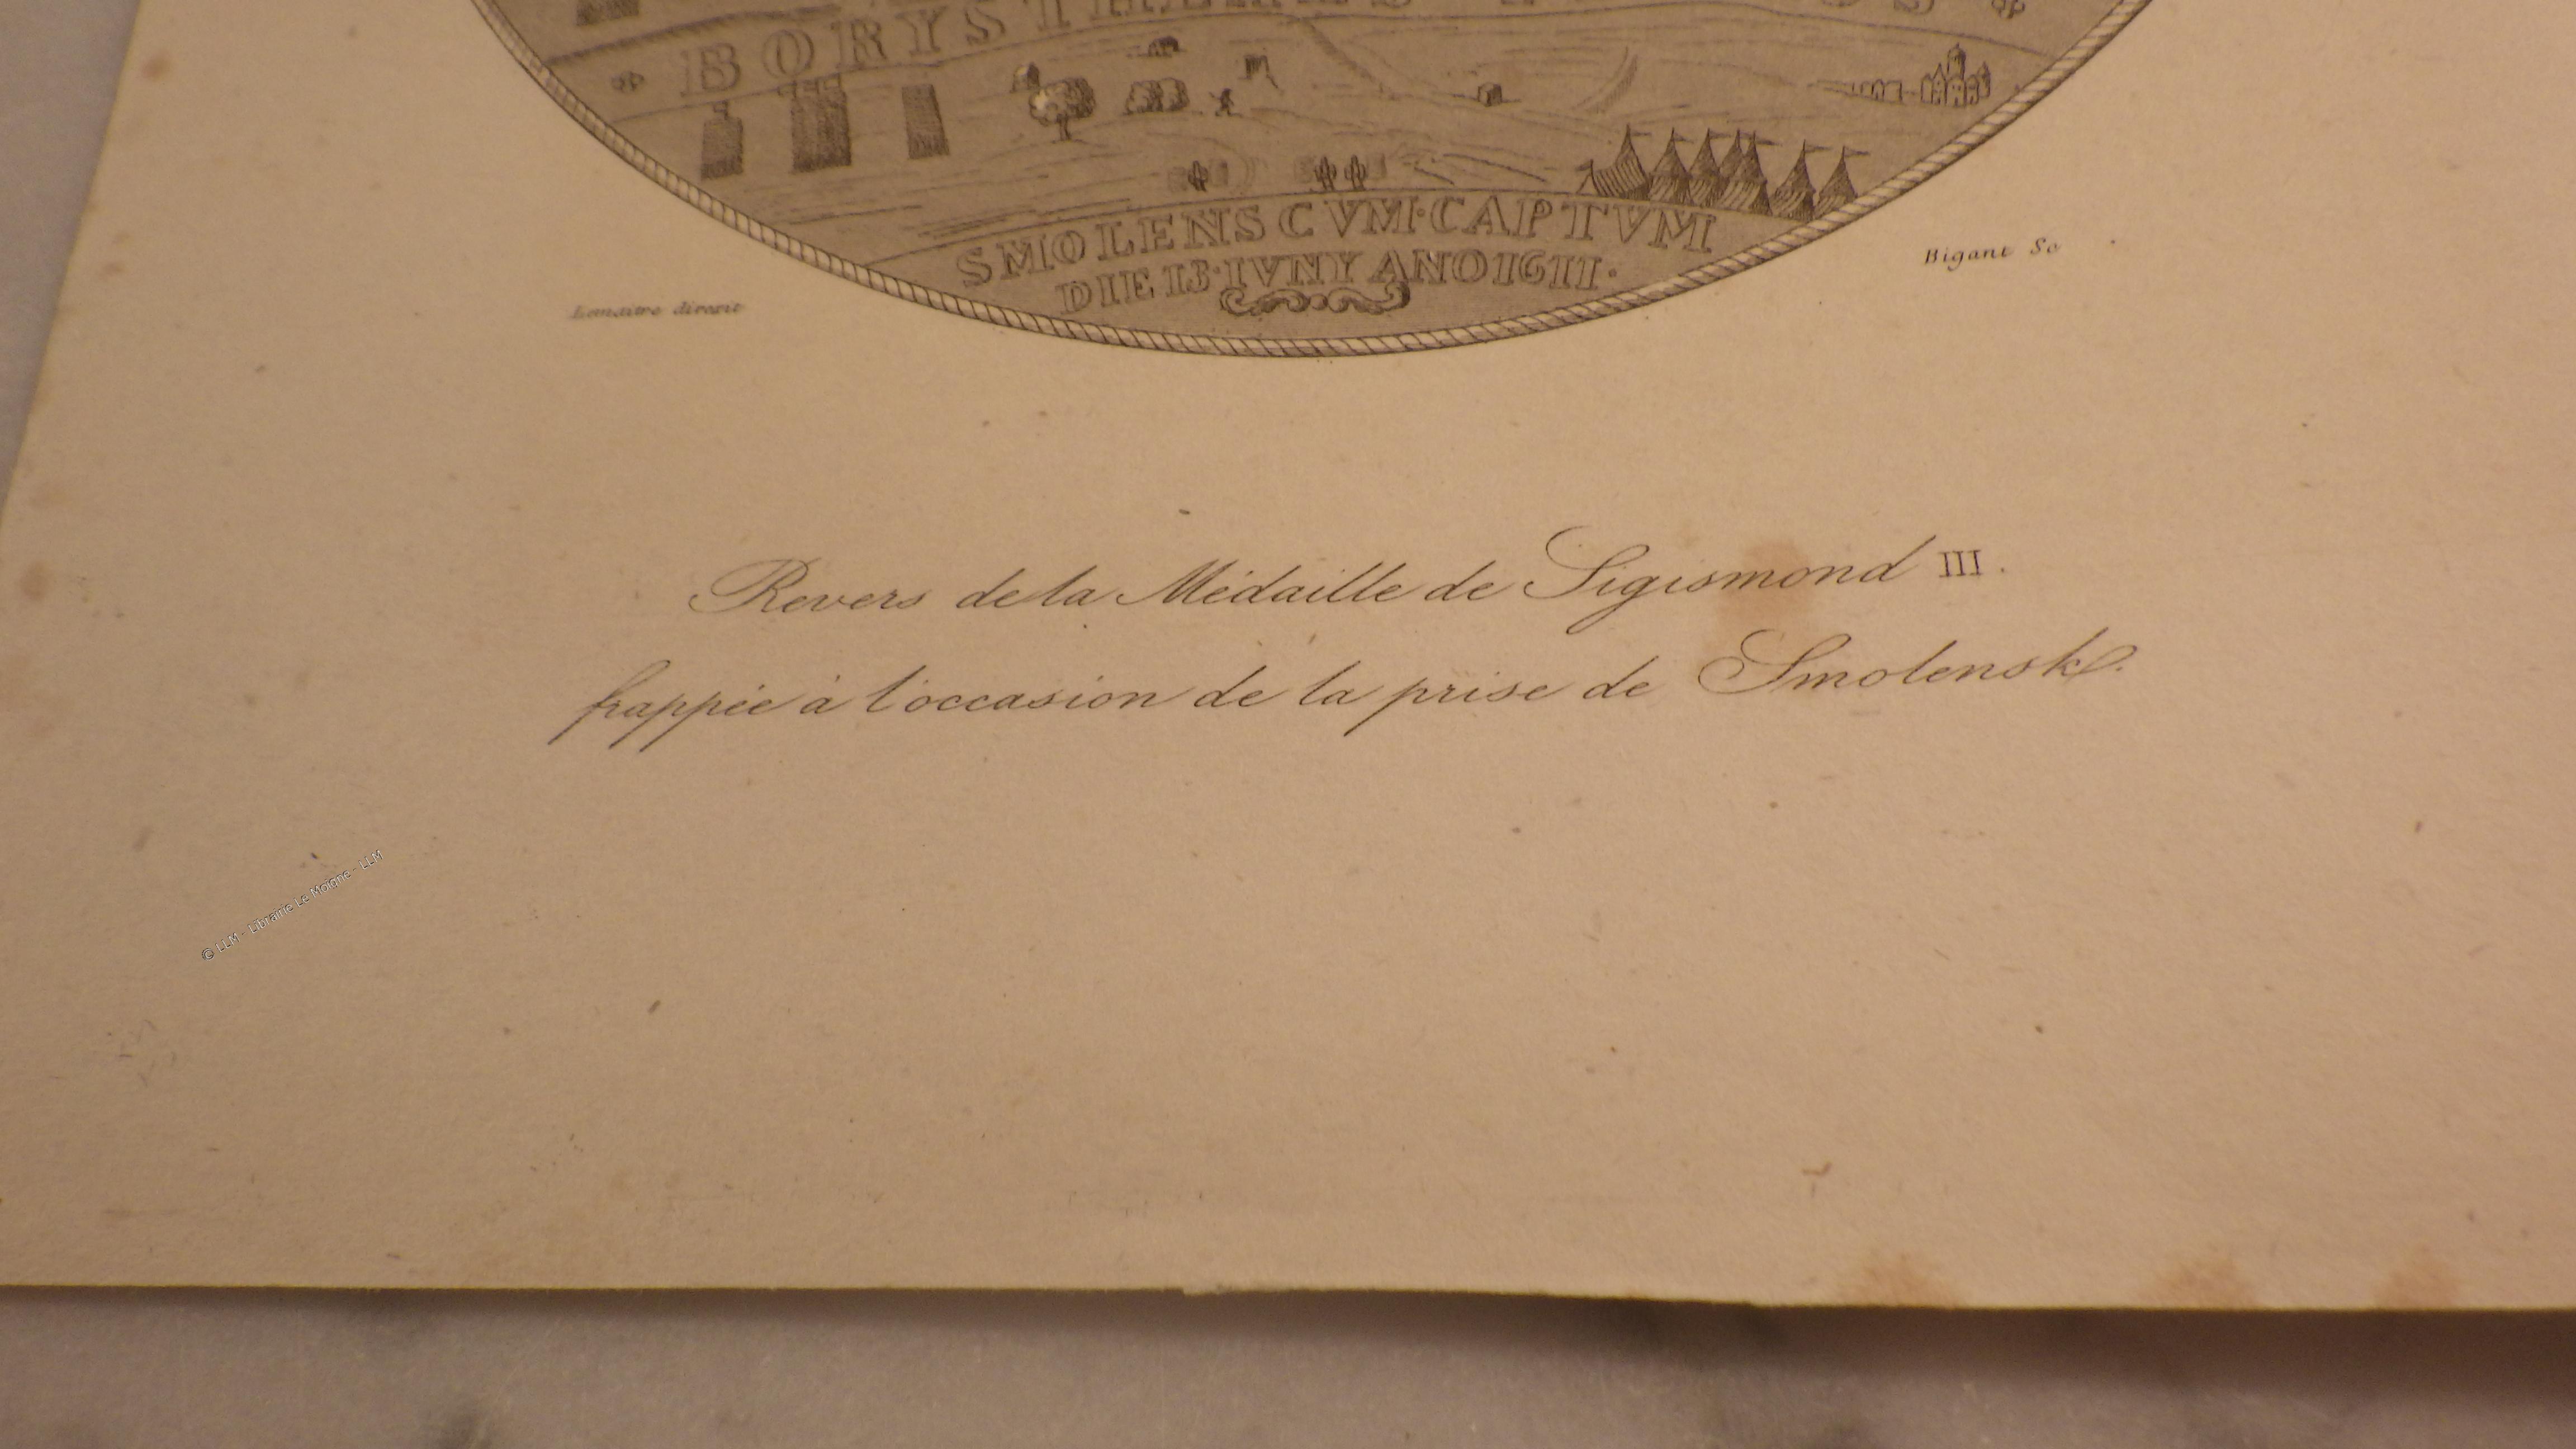 BORYSTHENES
SMOLENSCVM·CAPTVM
DIE 13·IVNY ANO 1611·
Lemaitre direxit
Bigant Sc
Revers de la Médaille de Sigismond III.
frappée à l'occasion de la prise de Smolensk.
© LLM - Librairie Le Moigne - LLM